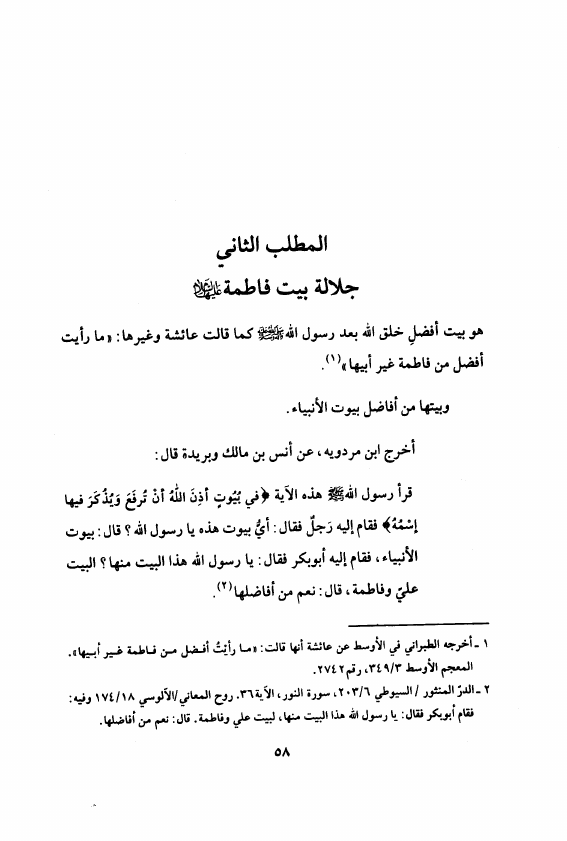 المطلب الثاني
جلالة بيت فاطمة عليها السلام
هو بيت أفضل خلق الله بعد رسول الله ﷺ كما قالت عائشة وغيرها: «ما رأيت
أفضل من فاطمة غير أبيها»(١).
وبيتها من أفاضل بيوت الأنبياء.
أخرج ابن مردويه، عن أنس بن مالك وبريدة قال:
قرأ رسول الله ﷺ هذه الآية ﴿في بُيُوتٍ أَذِنَ اللهُ أنْ تُرفَعَ وَيُذْكَرَ فيها
إسْمُهُ﴾ فقام إليه رَجلٌ فقال: أيُّ بيوت هذه يا رسول الله؟ قال: بيوت
الأنبياء، فقام إليه أبوبكر فقال: يا رسول الله هذا البيت منها؟ البيت
عليّ وفاطمة، قال: نعم من أفاضلها(٢).
١ ـ أخرجه الطبراني في الأوسط عن عائشة أنها قالت: «مـا رأيتُ أفـضل مـن فـاطمة غـير أبـيها».
المعجم الأوسط ٣٤٩/٣، رقم ٢٧٤٢.
٢ ـ الدرّ المنثور / السيوطي ٢٠٣/٦، سورة النور، الآية ٣٦. روح المعاني/الآلوسي ١٧٤/١٨ وفيه:
فقام أبوبكر فقال: يا رسول الله هذا البيت منها، لبيت علي وفاطمة. قال: نعم من أفاضلها.
٥٨